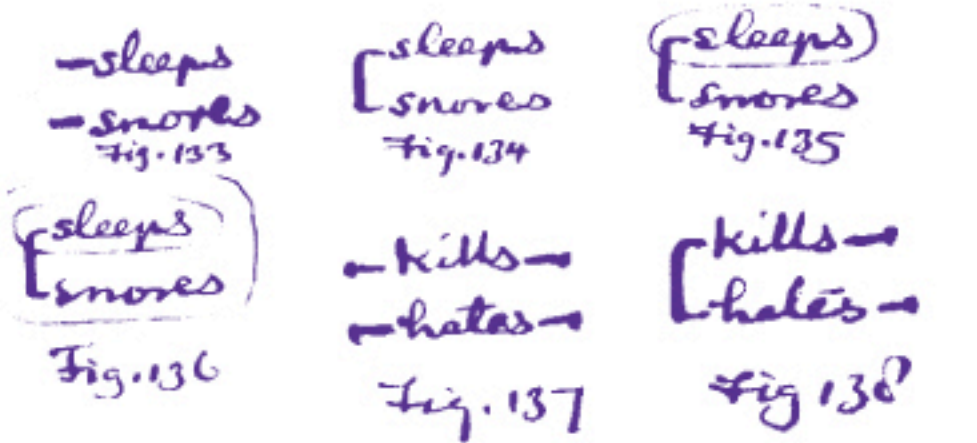 sleeps
snores
Fig. 133
sleeps
snores
Fig. 134
sleeps
snores
Fig. 135
sleeps
snores
Fig. 136
kills
hates
Fig. 137
kills
hates
Fig 138